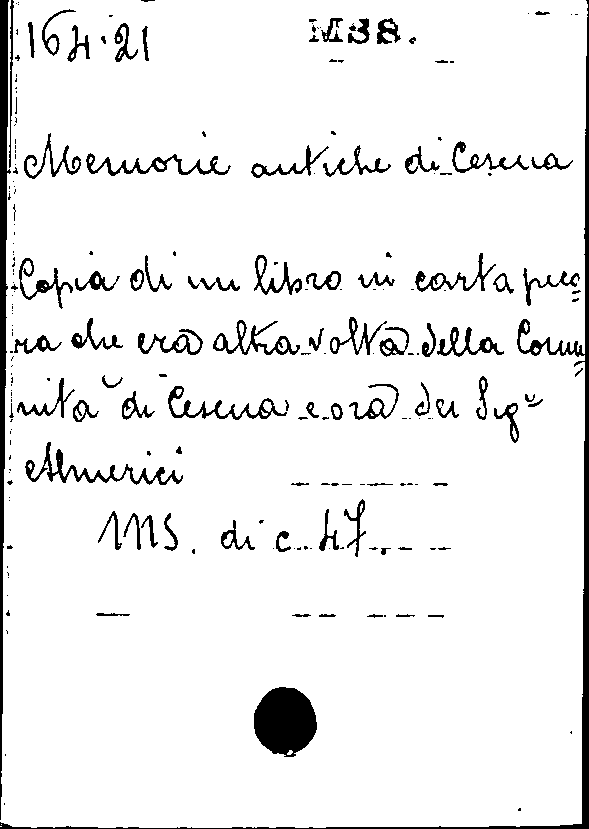 164.21 MSS.
Memorie antiche di Cesena
Copia di un libro in carta peco=
ra che era altra volta della Comu=
nità di Cesena e ora dei Sigri
Almerici
MS. di c. 47.